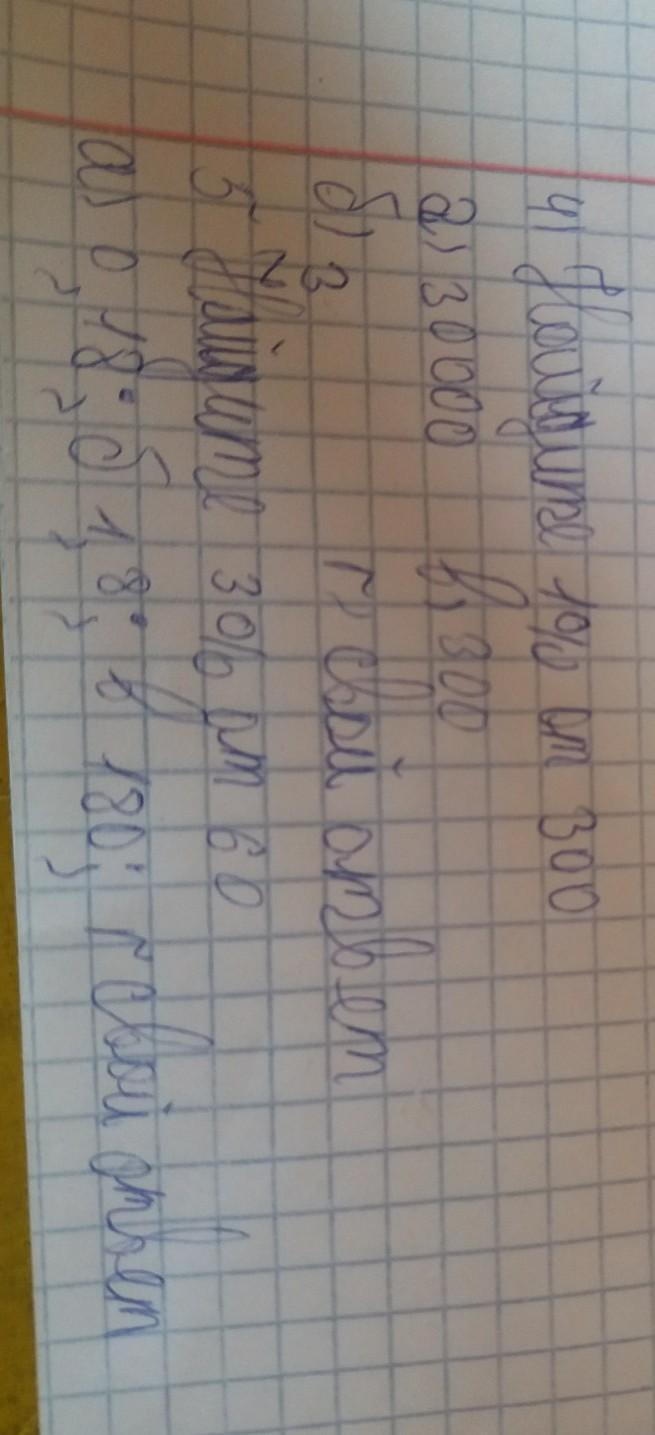 4) Найдите 1% от 300
а) 30000 в) 300
б) 3 г) свой ответ
5 Найдите 3% от 60
а) 0,18; б 1,8; в 180; г свой ответ